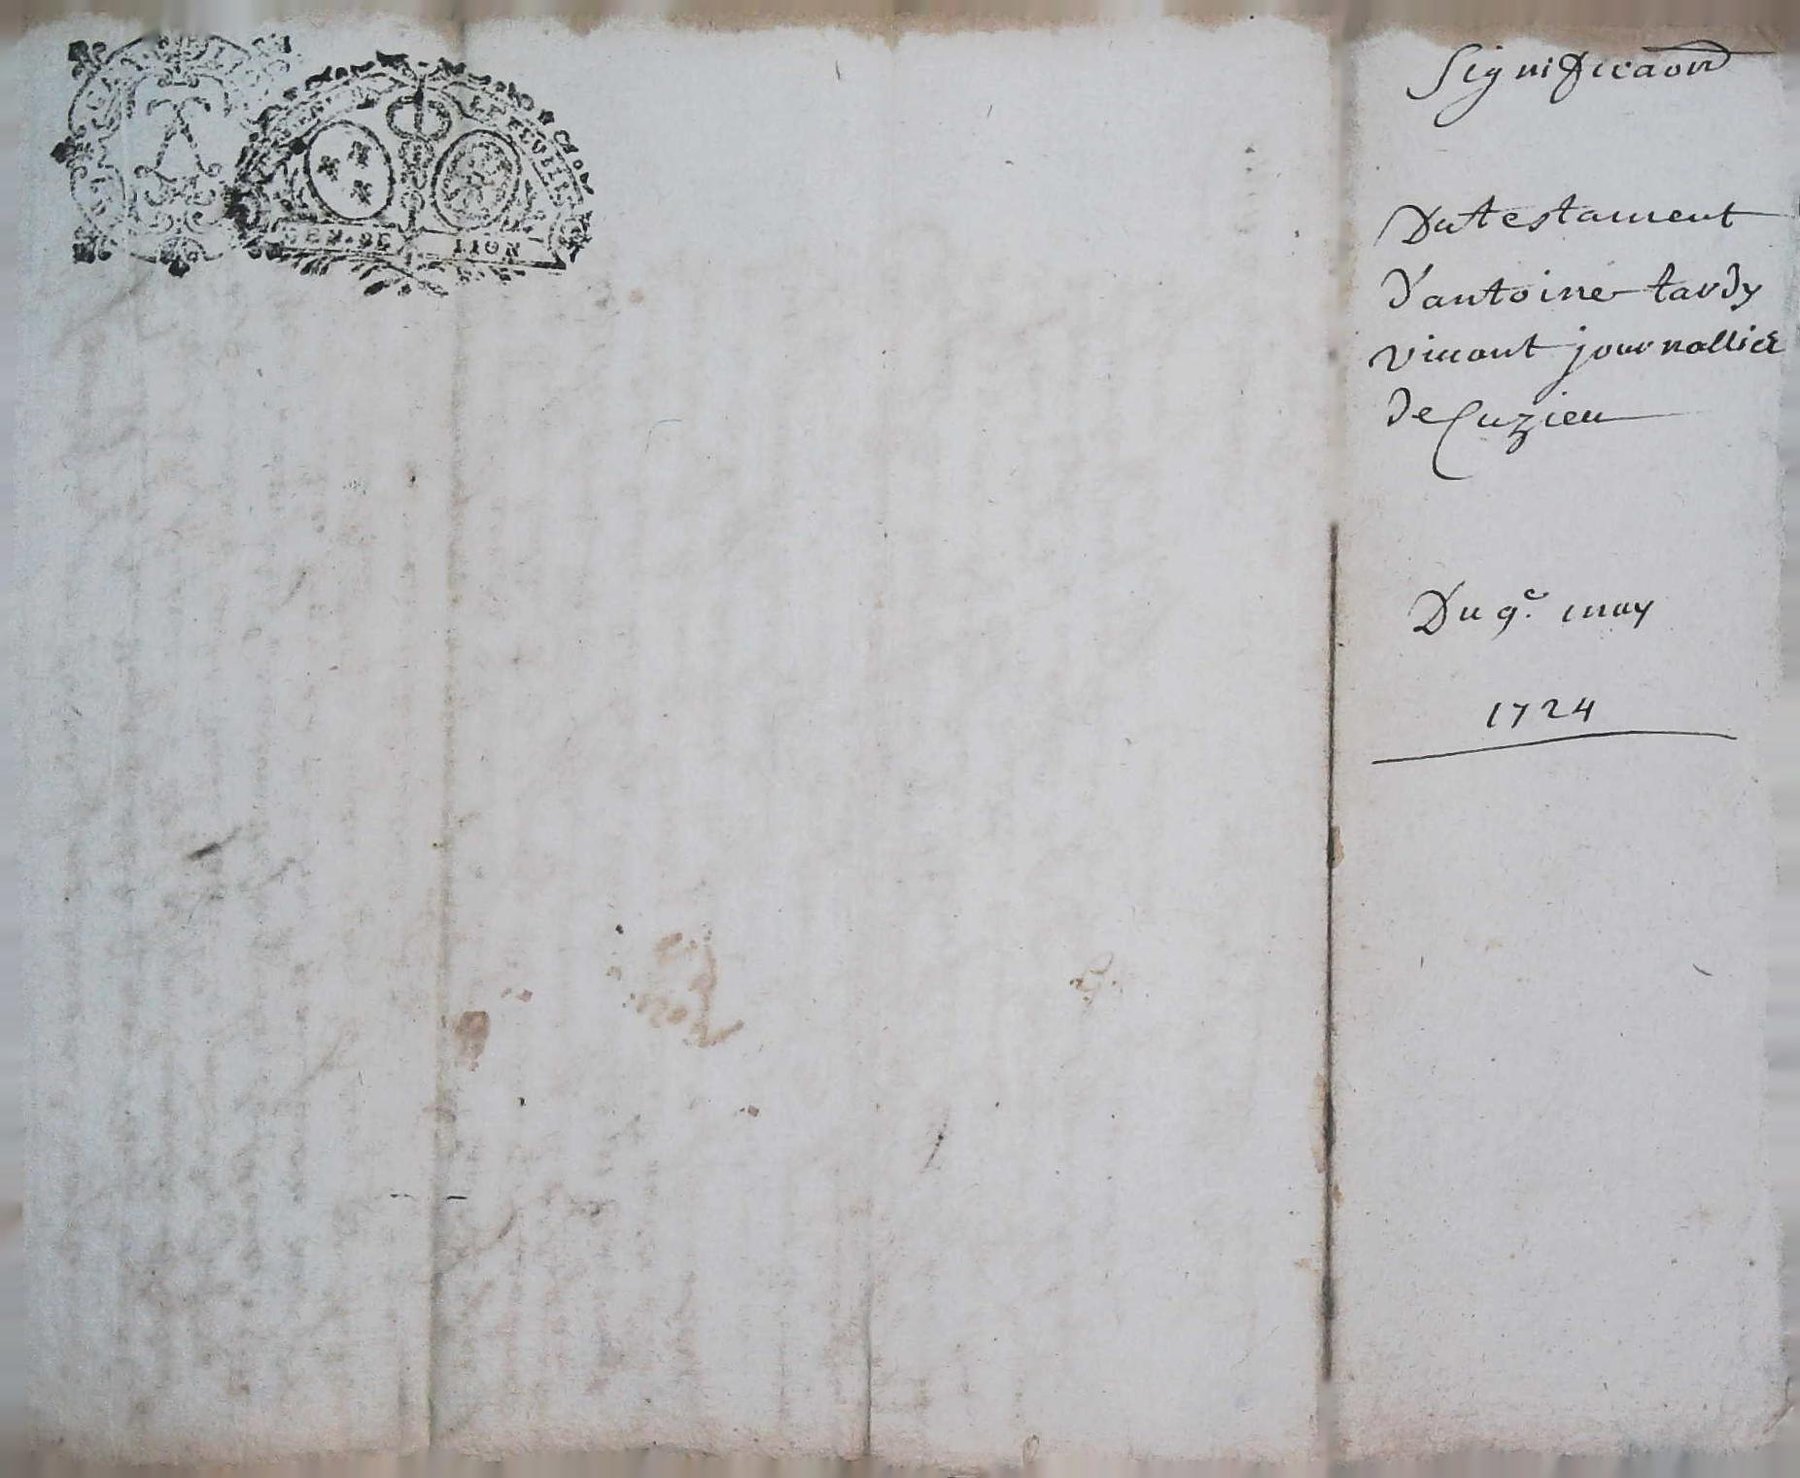 GEN. DE LION
Significaon
Du testament
d'antoine tardy
viuant journallier
de Cuzieu
Du 9e. may
1724